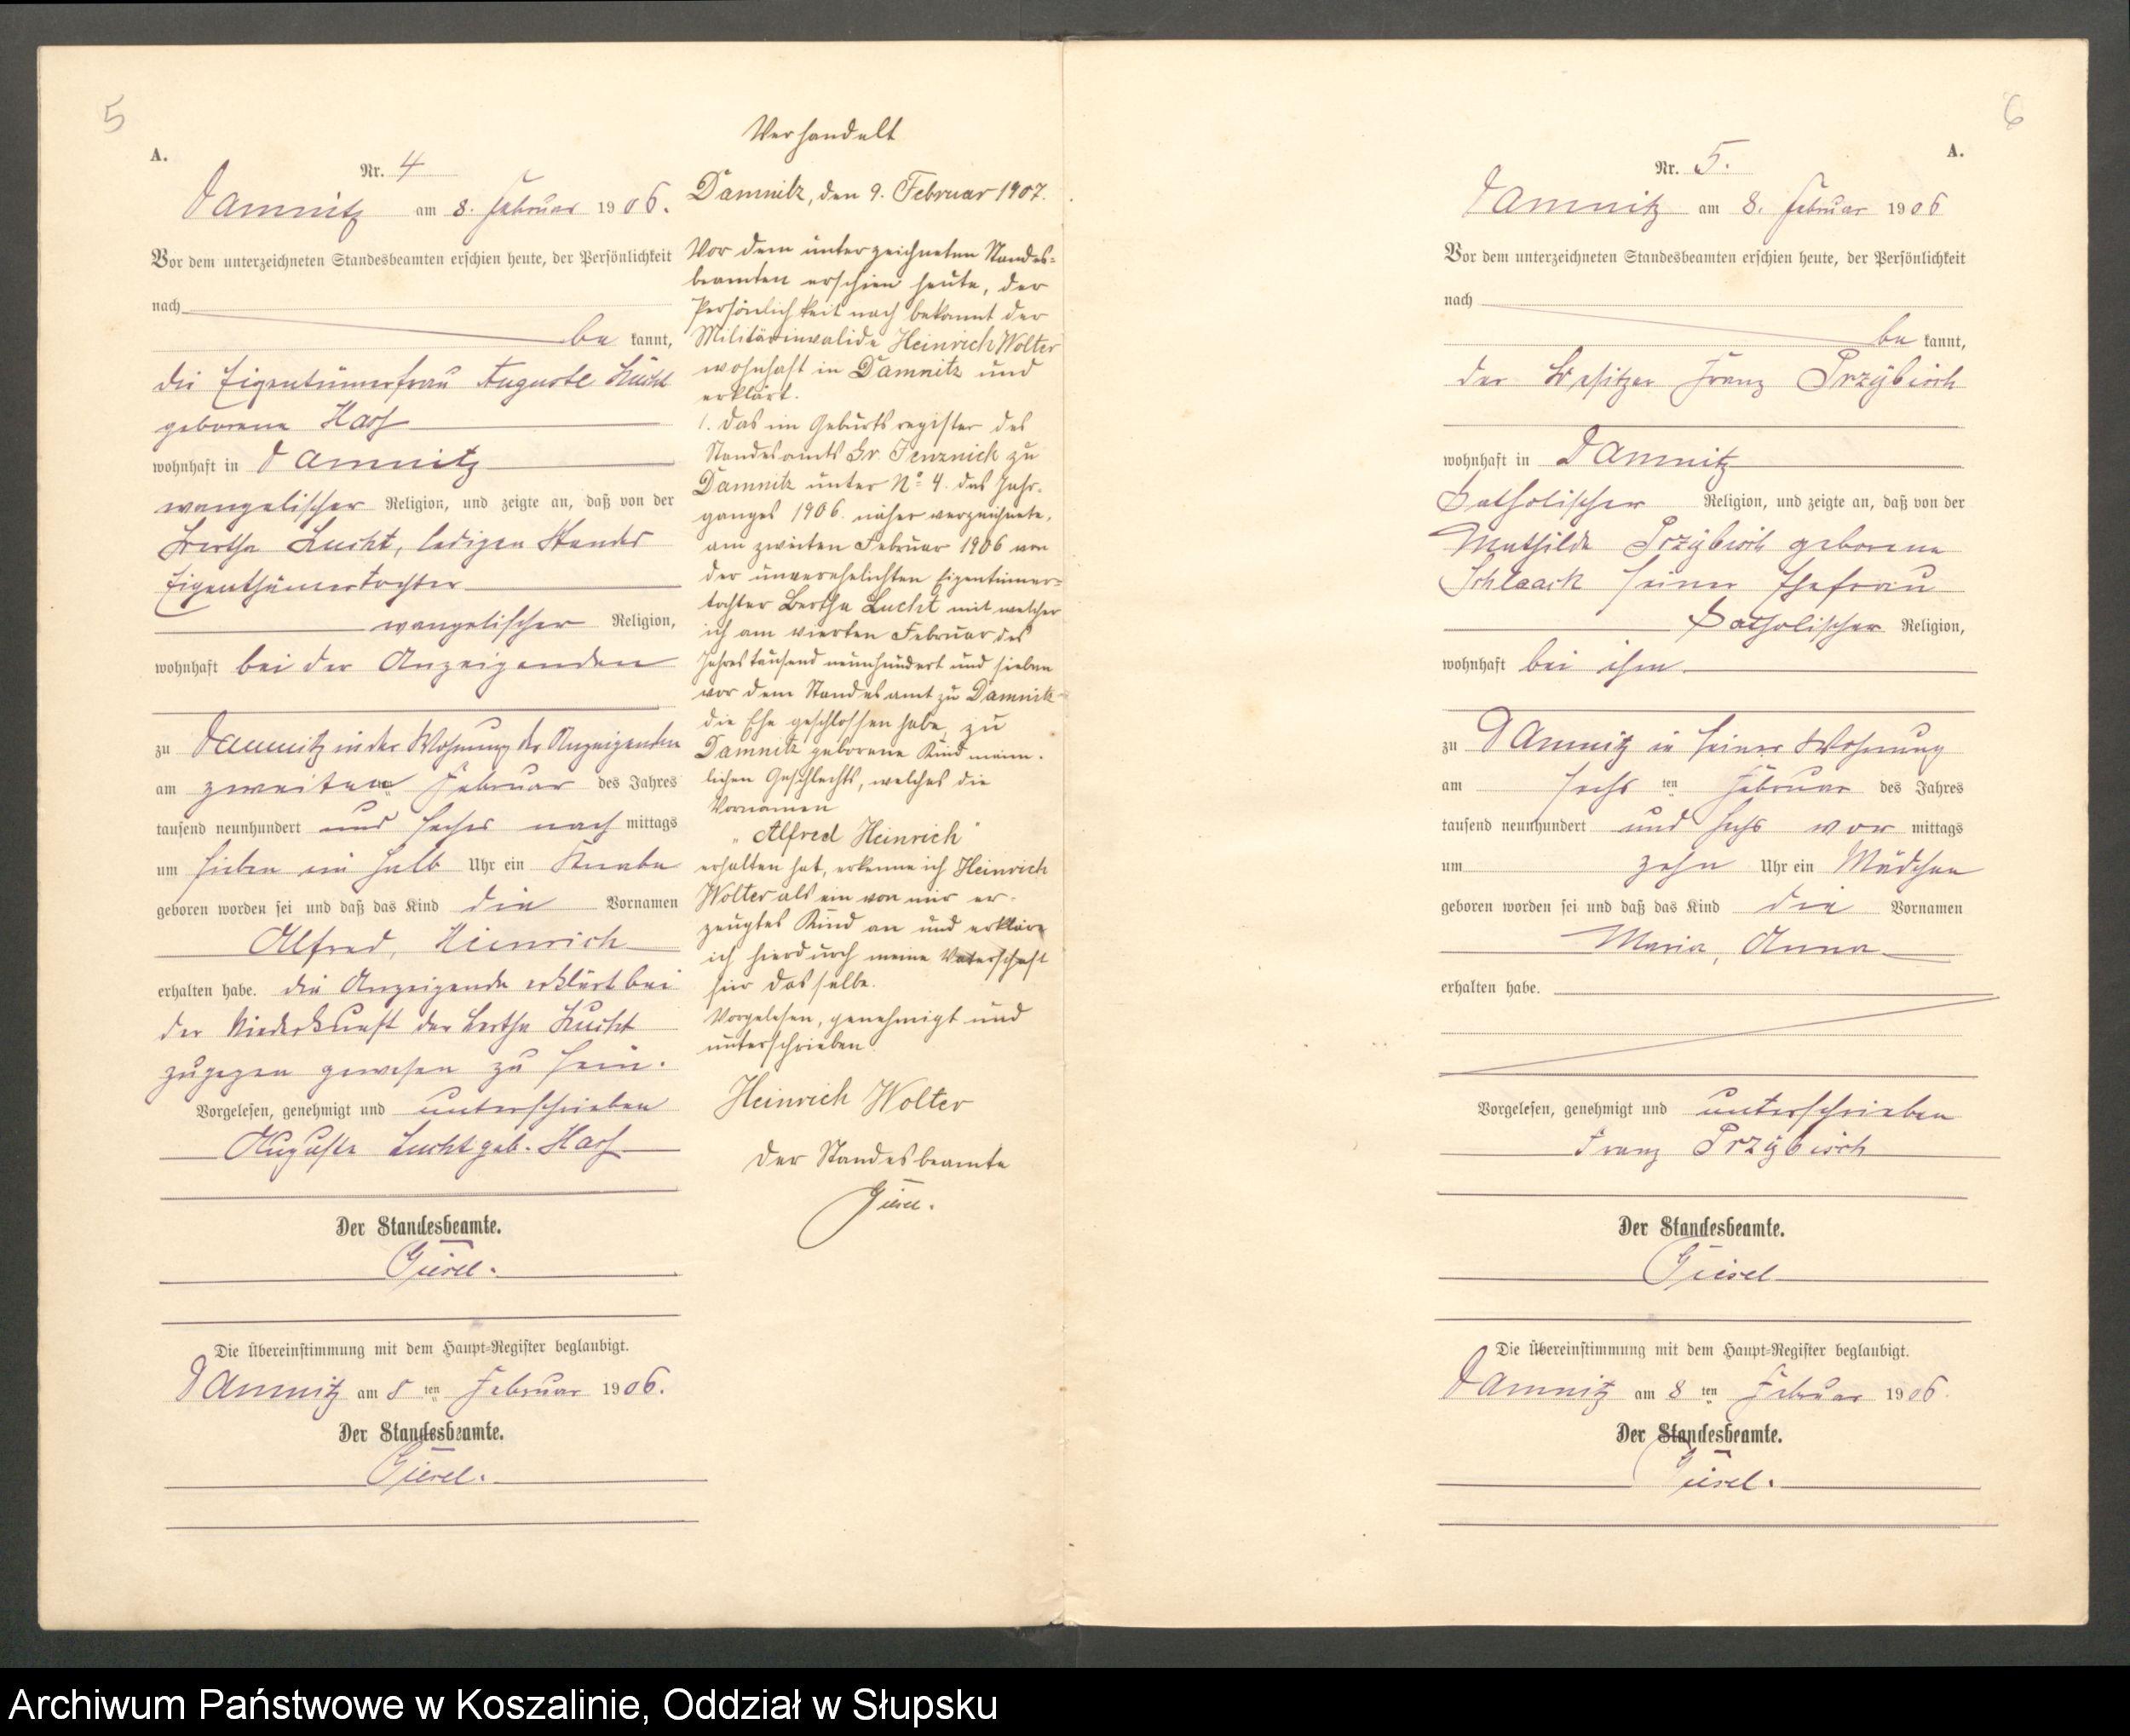 5
A.
Nr. 4
Damnitz am 8. Februar 1906.
Vor dem unterzeichneten Standesbeamten erschien heute, der Persönlichkeit
nach
be kannt,
die Eigentümerfrau Auguste Lucht
geborene
wohnhaft in Damnitz
evangelischer Religion, und zeigte an, daß von der
Bertha Lucht, ledigen Standes
Eigenthümertochter
evangelischer Religion,
wohnhaft bei der Anzeigenden
zu Damnitz in der Wohnung der Anzeigenden
am zweiten Februar des Jahres
tausend neunhundert und sechs nach mittags
um sieben ein halb Uhr ein Knabe
geboren worden sei und daß das Kind die Vornamen
Alfred, Heinrich
erhalten habe. die Anzeigende erklärt bei
der Niederkunft der Bertha Lucht
zugegen gewesen zu sein.
Vorgelesen, genehmigt und unterschrieben
Auguste Lucht geb.
Der Standesbeamte.
Giesel.
Die Übereinstimmung mit dem Haupt-Register beglaubigt.
Damnitz am 8 ten Februar 1906.
Der Standesbeamte.
Giesel.
Verhandelt
Damnitz, den 9. Februar 1907.
Vor dem unterzeichneten Standes-
beamten erschien heute, der
Persönlichkeit nach bekannt der
Militärinvalide Heinrich Wolter
wohnhaft in Damnitz und
erklärt.
1. Das im Geburtsregister des
Standesamts Gr. Jenznick zu
Damnitz unter No 4. des Jahr-
ganges 1906. näher verzeichnete,
am zweiten Februar 1906 von
der unverehelichten Eigentümer-
tochter Bertha Lucht mit welcher
ich am vierten Februar des
Jahres tausend neunhundert und sieben
vor dem Standesamt zu Damnitz
die Ehe geschlossen habe, zu
Damnitz geborene Kind männ-
lichen Geschlechts, welches die
Vornamen
„Alfred Heinrich"
erhalten hat, erkenne ich Heinrich
Wolter als ein von mir er-
zeugtes Kind an und erkläre
ich hierdurch meine Vaterschaft
für dasselbe.
Vorgelesen, genehmigt und
unterschrieben.
Heinrich Wolter
Der Standesbeamte
Giesel.
6
A.
Nr. 5.
Damnitz am 8. Februar 1906
Vor dem unterzeichneten Standesbeamten erschien heute, der Persönlichkeit
nach
be kannt,
der Besitzer Franz Przybisch
wohnhaft in Damnitz
Katholischer Religion, und zeigte an, daß von der
Mathilde Przybisch geborene
Schlaack seiner Ehefrau
Katholischer Religion,
wohnhaft bei ihm
zu Damnitz in seiner Wohnung
am sechs ten Februar des Jahres
tausend neunhundert und sechs vor mittags
um zehn Uhr ein Mädchen
geboren worden sei und daß das Kind die Vornamen
Maria, Anna
erhalten habe.
Vorgelesen, genehmigt und unterschrieben
Franz Przybisch
Der Standesbeamte.
Giesel
Die Übereinstimmung mit dem Haupt-Register beglaubigt.
Damnitz am 8 ten Februar 1906.
Der Standesbeamte.
Giesel.
Archiwum Państwowe w Koszalinie, Oddział w Słupsku